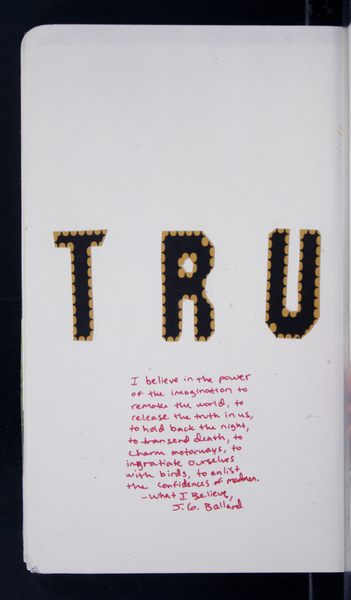 TRU
I believe in the power
of the imagination to
remake the world, to
release the truth in us,
to hold back the night,
to transend death, to
charm motorways, to
ingratiate ourselves
with birds, to enlist
the confidences of madmen.
-What I Believe,
J.G. Ballard